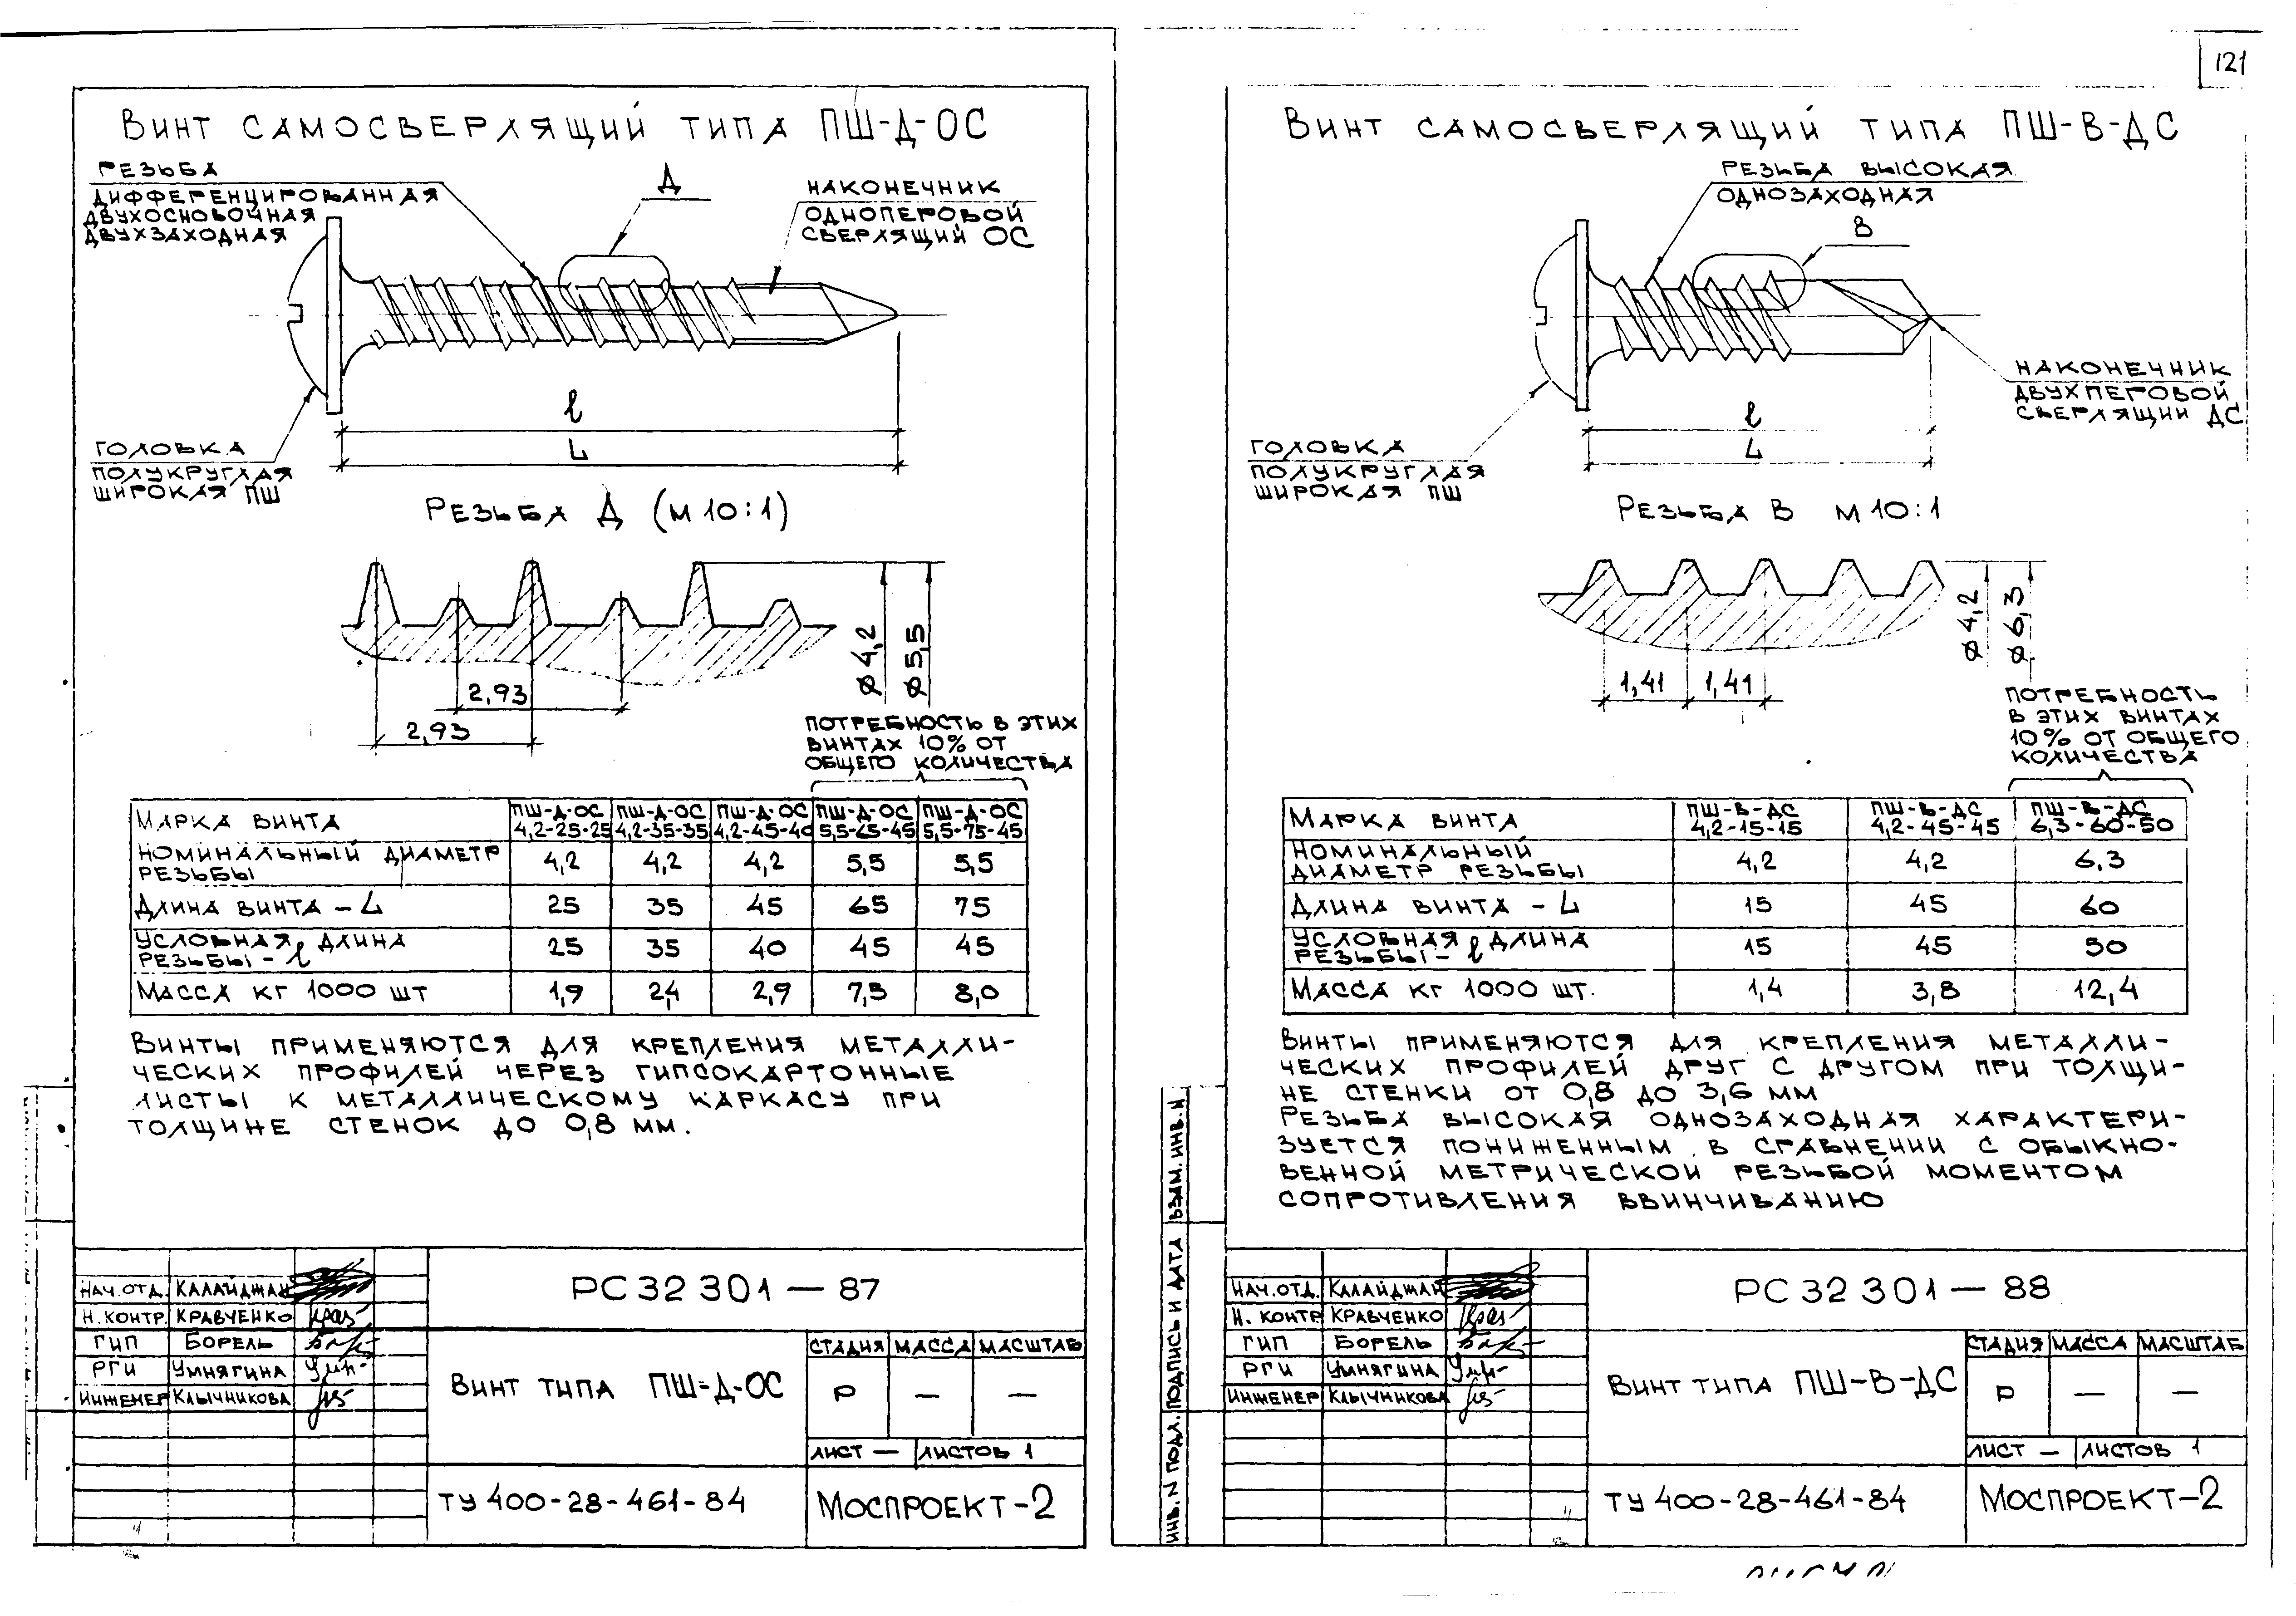 121
Винт самосверлящий типа ПШ-Д-ОС
Резьба
дифференцированная
двухосновочная
двухзаходная
Д
Наконечник
одноперовой
сверлящий ОС
ℓ
L
Головка
полукруглая
широкая ПШ
Резьба Д (М 10:1)
2,93
2,93
ø 4,2
ø 5,5
Потребность в этих
винтах 10% от
общего количества
Марка винта | ПШ-Д-ОС 4,2-25-25 | ПШ-Д-ОС 4,2-35-35 | ПШ-Д-ОС 4,2-45-40 | ПШ-Д-ОС 5,5-65-45 | ПШ-Д-ОС 5,5-75-45
Номинальный диаметр резьбы | 4,2 | 4,2 | 4,2 | 5,5 | 5,5
Длина винта - L | 25 | 35 | 45 | 65 | 75
Условная длина резьбы - ℓ | 25 | 35 | 40 | 45 | 45
Масса кг 1000 шт | 1,9 | 2,4 | 2,9 | 7,5 | 8,0
Винты применяются для крепления металли-
ческих профилей через гипсокартонные
листы к металлическому каркасу при
толщине стенок до 0,8 мм.
РС 32 301 - 87
Нач.отд. Калайджан
Н. контр. Кравченко
ГИП Борель
РГИ Умнягина
Инженер Клычникова
Винт типа ПШ-Д-ОС
Стадия Масса Масштаб
Р — —
Лист — Листов 1
ТУ 400-28-461-84
Моспроект-2
Винт самосверлящий типа ПШ-В-ДС
Резьба высокая
однозаходная
В
Наконечник
двухперовой
сверлящий ДС
ℓ
L
Головка
полукруглая
широкая ПШ
Резьба В М 10:1
1,41 1,41
ø 4,2
ø 6,3
Потребность
в этих винтах
10% от общего
количества
Марка винта | ПШ-В-ДС 4,2-15-15 | ПШ-В-ДС 4,2-45-45 | ПШ-В-ДС 6,3-60-50
Номинальный диаметр резьбы | 4,2 | 4,2 | 6,3
Длина винта - L | 15 | 45 | 60
Условная длина резьбы - ℓ | 15 | 45 | 50
Масса кг 1000 шт. | 1,4 | 3,8 | 12,4
Винты применяются для крепления металли-
ческих профилей друг с другом при толщи-
не стенки от 0,8 до 3,6 мм
Резьба высокая однозаходная характери-
зуется пониженным в сравнении с обыкно-
венной метрической резьбой моментом
сопротивления ввинчиванию
Инв. N подл. Подпись и дата Взам. инв. N
РС 32 301 - 88
Нач.отд. Калайджан
Н. контр Кравченко
ГИП Борель
РГИ Умнягина
Инженер Клычникова
Винт типа ПШ-В-ДС
Стадия Масса Масштаб
Р — —
Лист — Листов 1
ТУ 400-28-461-84
Моспроект-2